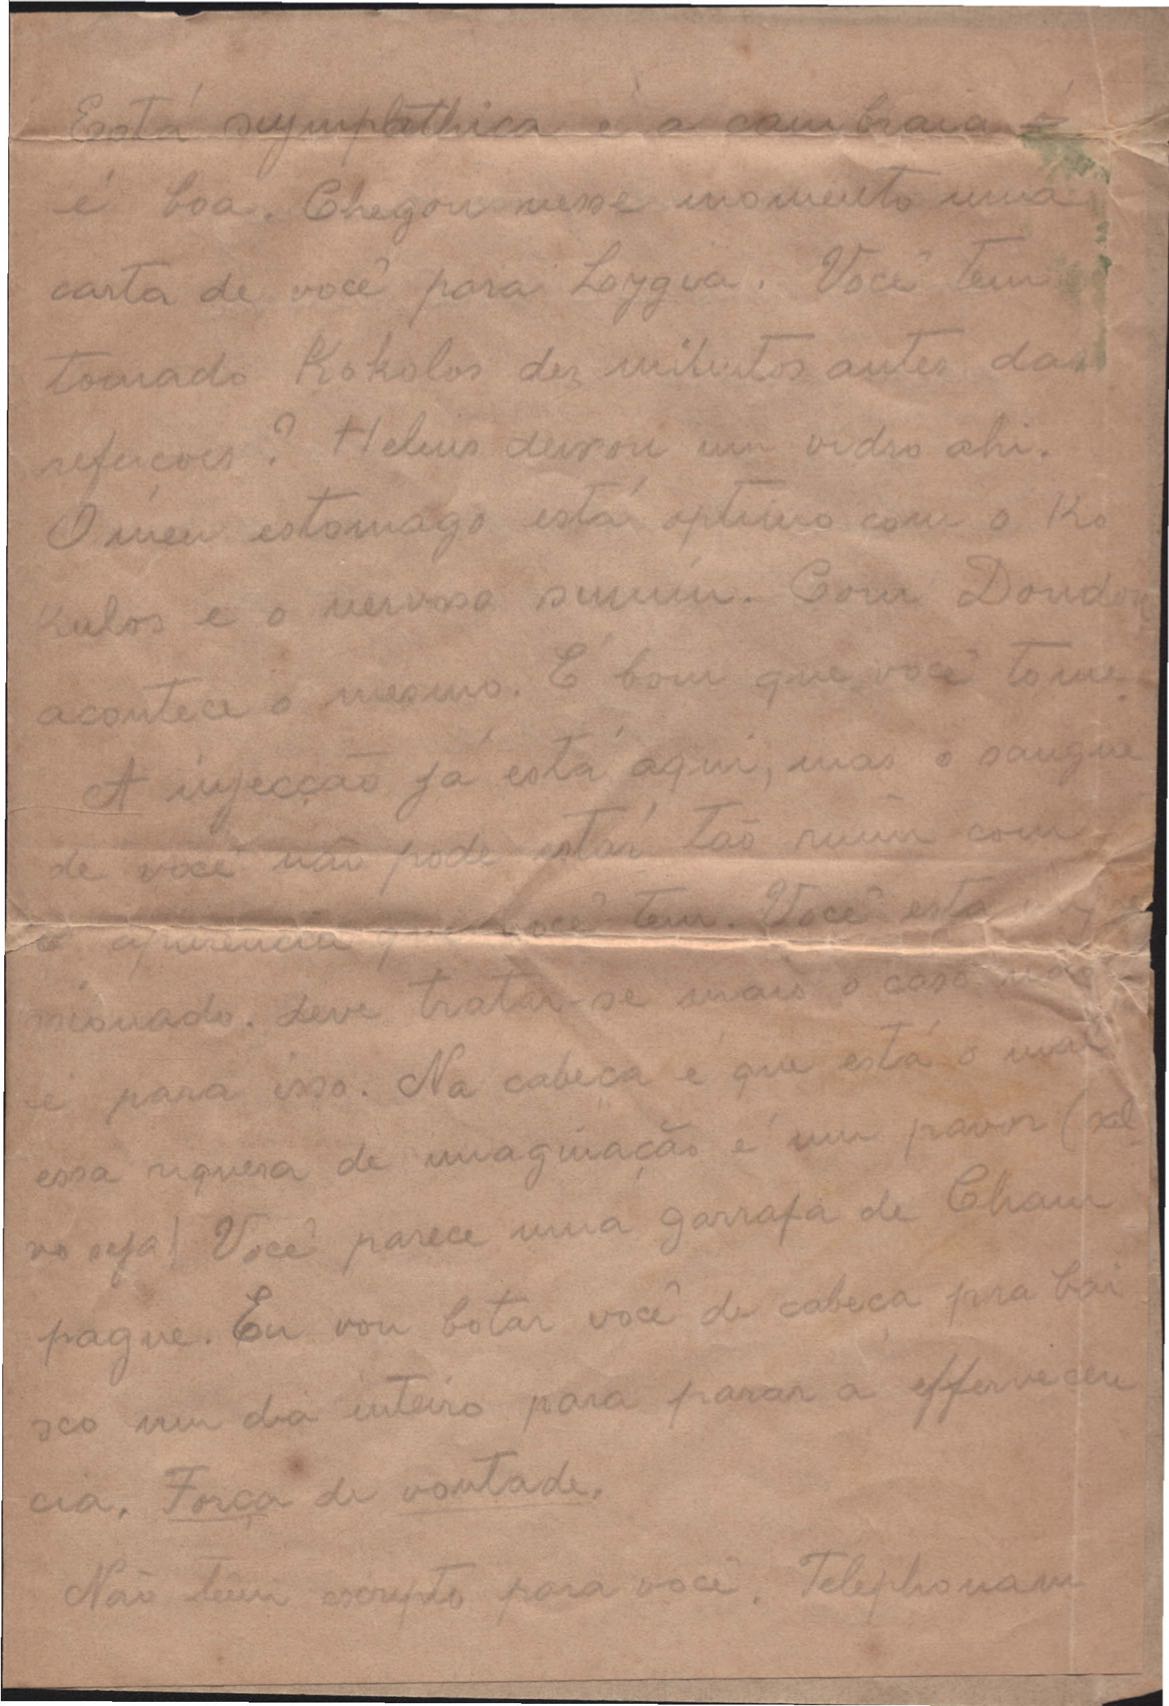 Está sympathica e a cambraia
é boa. Chegou nesse momento uma
carta de você para Lygia. Você tem
tomado Kokolos dez minutos antes das
refeições? Helius deixou um vidro ahi.
O meu estomago está optimo com o Ko
kulos e o nervoso sumiu. Com Dondon
acontece o mesmo. É bom que você tome.
A injecção já está aqui, mas o sangue
de você não pode estár tão ruim com
a apparencia que você tem. Você está
sionado. deve tratar-se mais o caso não
é para isso. Na cabeça é que está o mal
essa riquesa de imaginação é um pavor (sal
vo seja! Você parece uma garrafa de Cham
pagne. Eu vou botar você de cabeça pra bai
xo um dia inteiro para parar a effervecen
cia. Força de vontade.
Não têm escripto para você. Telephonam